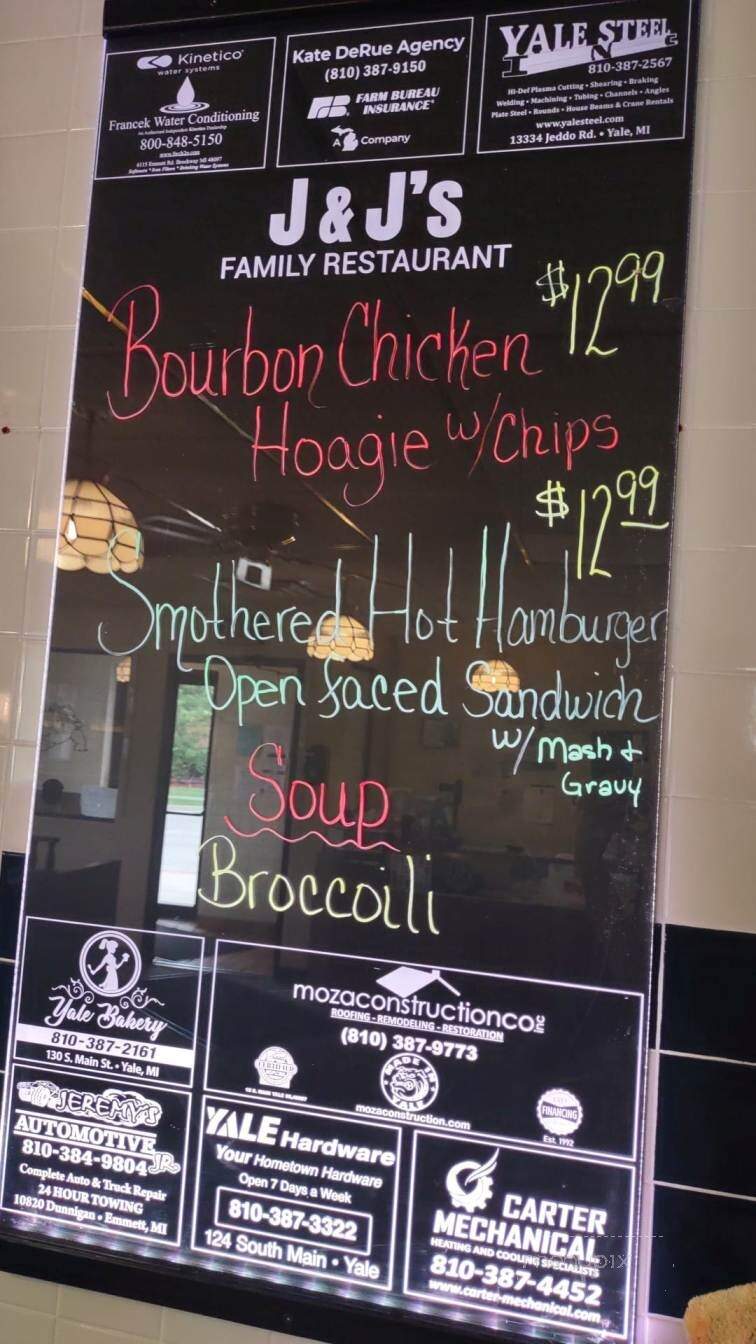 Kinetico
water systems
Francek Water Conditioning
An Authorized Independent Kinetico Dealership
800-848-5150
Kate DeRue Agency
(810) 387-9150
FB FARM BUREAU
INSURANCE
A Company
YALE STEEL
INC
810-387-2567
Hi-Def Plasma Cutting • Shearing • Braking
Welding • Machining • Tubing • Channels • Angles
Plate Steel • Rounds • House Beams & Crane Rentals
www.yalesteel.com
13334 Jeddo Rd. • Yale, MI
J & J's
FAMILY RESTAURANT
$12.99
Bourbon Chicken
Hoagie w/Chips
$12.99
Smothered Hot Hamburger
Open faced Sandwich
w/ Mash +
Gravy
Soup
Broccoili
Yale Bakery
810-387-2161
130 S. Main St. • Yale, MI
mozaconstructionco inc
ROOFING - REMODELING - RESTORATION
(810) 387-9773
CERTIFIED
MADE IN
YALE
mozaconstruction.com
FINANCING
Est. 1992
JEREMY'S
AUTOMOTIVE JR
810-384-9804
Complete Auto & Truck Repair
24 HOUR TOWING
10820 Dunnigan • Emmett, MI
YALE Hardware
Your Hometown Hardware
Open 7 Days a Week
810-387-3322
124 South Main • Yale
CARTER
MECHANICAL
HEATING AND COOLING SPECIALISTS
810-387-4452
www.carter-mechanical.com